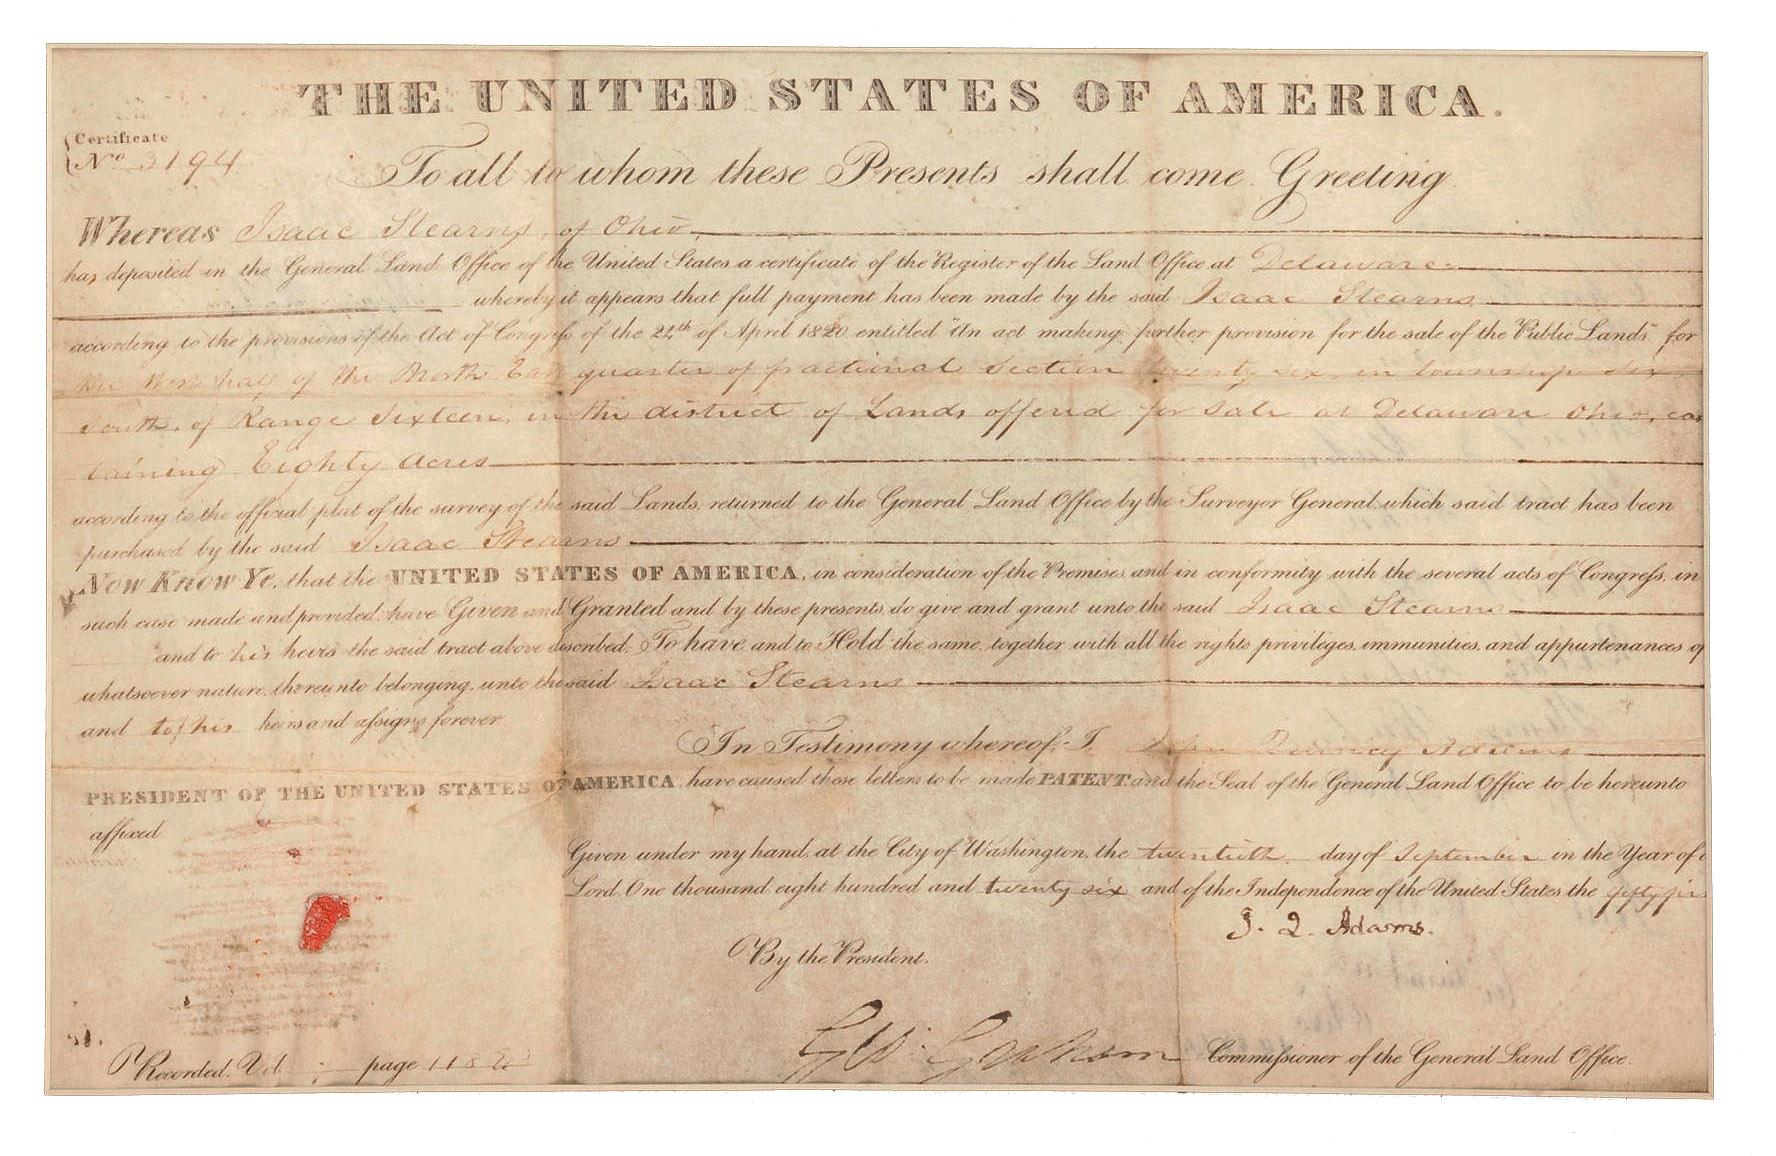 THE UNITED STATES OF AMERICA.
Certificate
No 3194
To all to whom these Presents shall come Greeting
Whereas Isaac Stearns, of Ohio,
has deposited in the General Land Office of the United States a certificate of the Register of the Land Office at Delaware
whereby it appears that full payment has been made by the said Isaac Stearns
according to the provisions of the Act of Congress of the 24th of April 1820 entitled "An act making further provision for the sale of the Public Lands" for
the West half of the North East quarter of fractional Section twenty six, in township Six
South, of Range Sixteen, in the district of Lands offered for Sale at Delaware Ohio, con
taining Eighty acres
according to the official plat of the survey of the said Lands, returned to the General Land Office by the Surveyor General which said tract has been
purchased by the said Isaac Stearns
Now Know Ye, that the UNITED STATES OF AMERICA, in consideration of the Premises and in conformity with the several acts of Congress, in
such case made and provided, have Given and Granted and by these presents, do give and grant unto the said Isaac Stearns
and to his heirs the said tract above described, To have and to Hold the same together with all the rights privileges, immunities, and appurtenances of
whatsoever nature, thereunto belonging, unto the said Isaac Stearns
and to his heirs and assigns forever
In Testimony whereof, I John Quincy Adams
PRESIDENT OF THE UNITED STATES OF AMERICA have caused these letters to be made PATENT and the Seal of the General Land Office to be hereunto
affixed
Given under my hand, at the City of Washington, the twentieth day of September in the Year of
Lord One thousand eight hundred and twenty six and of the Independence of the United States the fifty fir
J. Q. Adams.
By the President.
Commissioner of the General Land Office.
Recorded, Vol. page